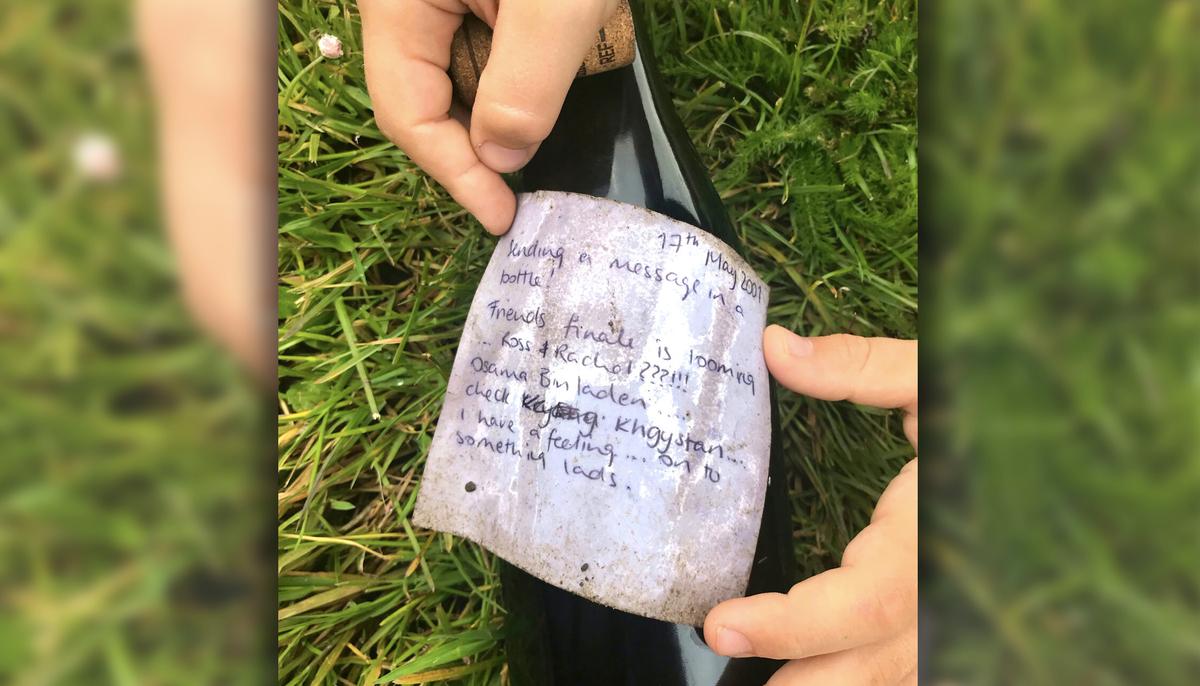 REF
17th May 2001
Sending a message in a
bottle!
Friends finale is looming
... Ross & Rachel ???!!!
Osama Bin laden .....
check Khgystan...
I have a feeling ... on to
something lads.